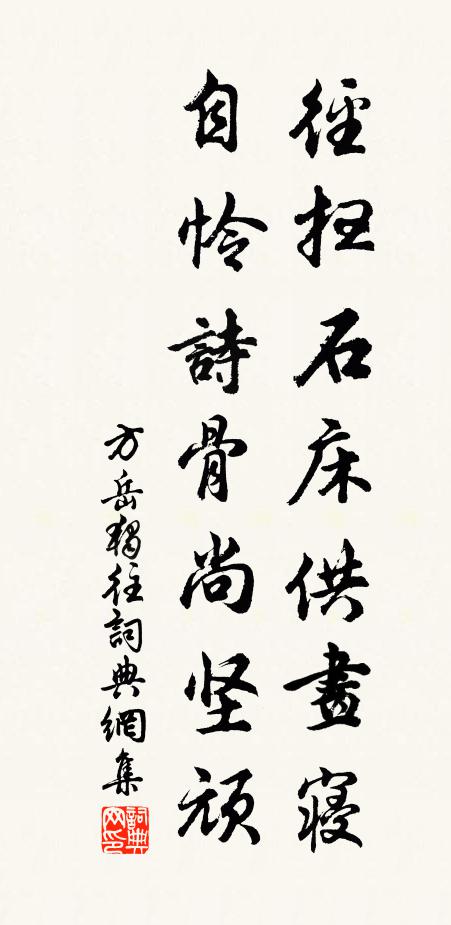 徑扫石床供晝寢
自怜詩骨尚坚顽
方岳獨往詞典網集
詞典网印